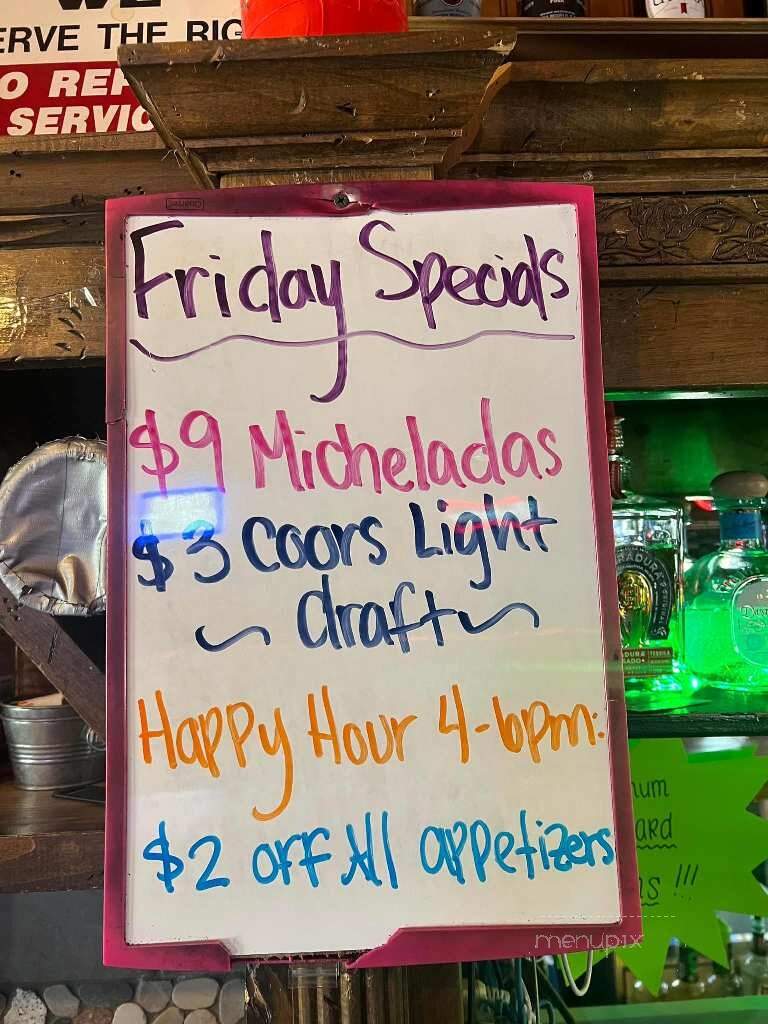 WE
ERVE THE RIG
O REF
SERVIC
Friday Specials
$9 Micheladas
$3 Coors Light
~ draft ~
Happy Hour 4-6pm:
$2 off All appetizers
num
ard
s !!!
menupix